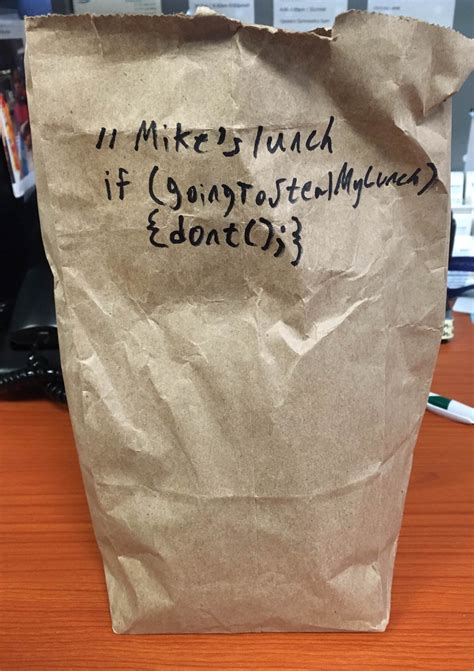 // Mike's lunch
if (goingToStealMyLunch)
{dont();}